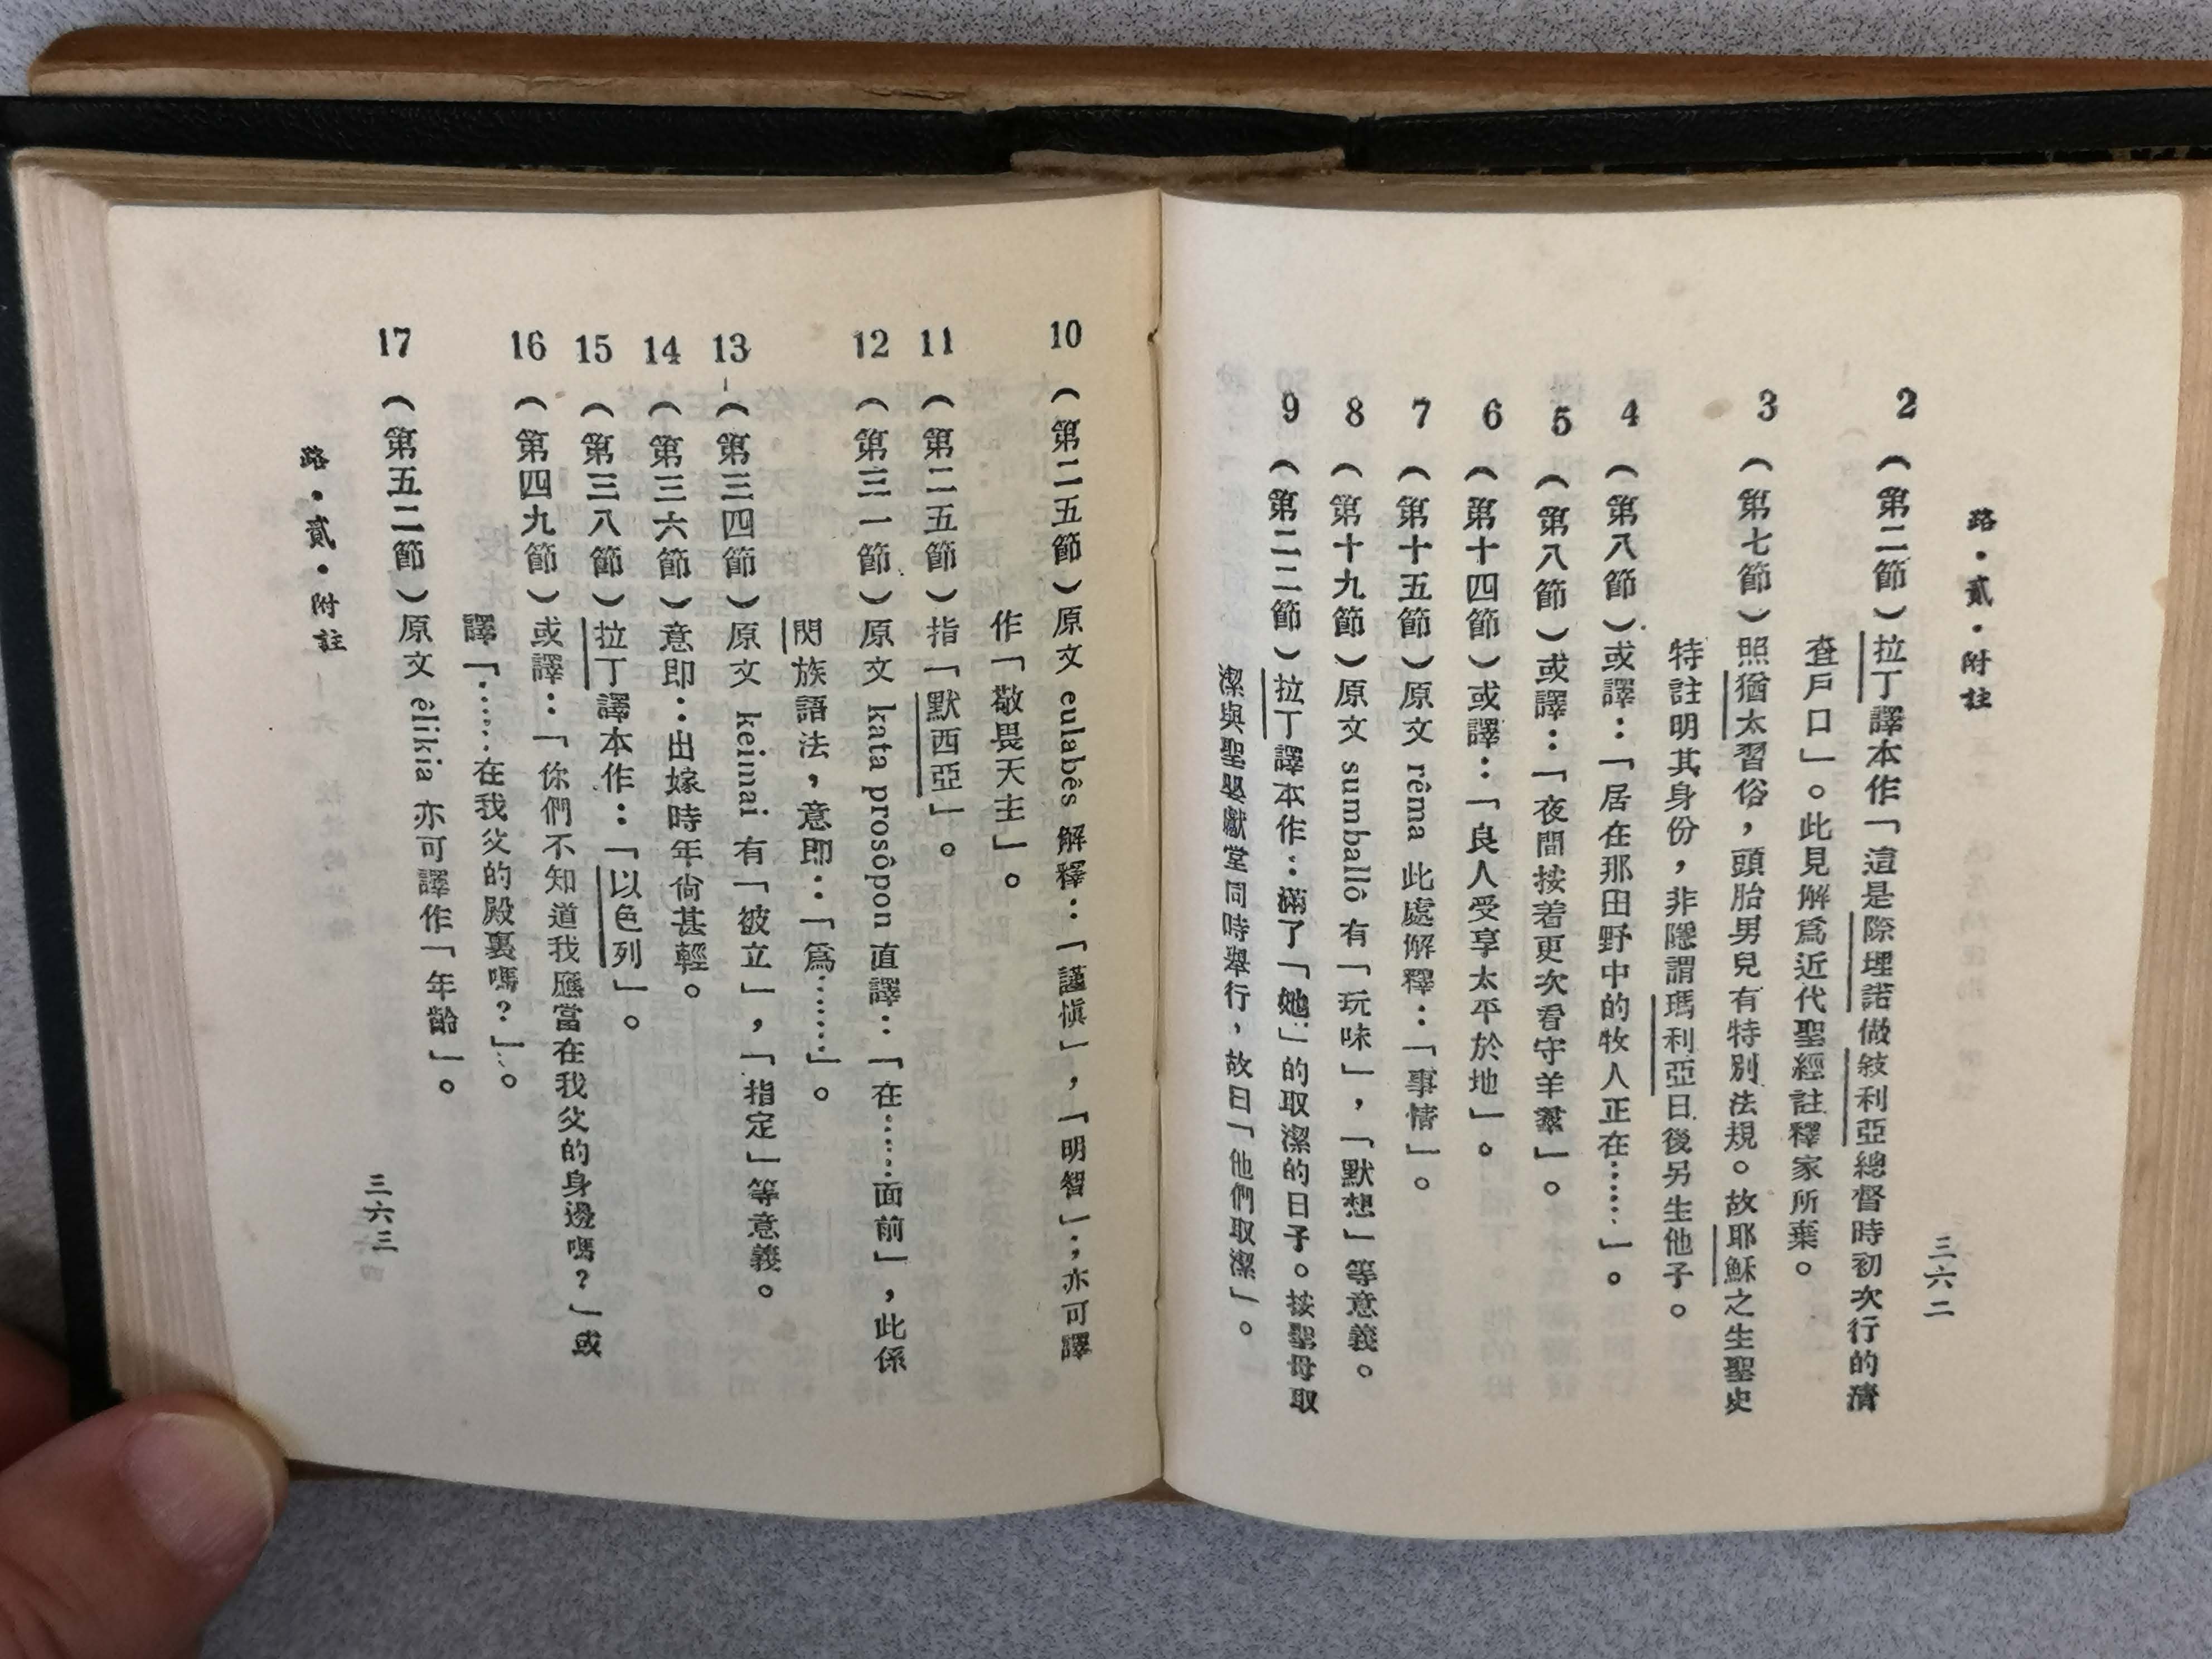 路•貳•附註
三六二
2（第二節）拉丁譯本作「這是際埋諾做敍利亞總督時初次行的清
查戶口」。此見解爲近代聖經註釋家所棄。
3（第七節）照猶太習俗，頭胎男兒有特別法規。故耶穌之生聖史
特註明其身份，非隱謂瑪利亞日後另生他子。
4（第八節）或譯：「居在那田野中的牧人正在……」。
5（第八節）或譯：「夜間按着更次看守羊羣」。
6（第十四節）或譯：「良人受享太平於地」。
7（第十五節）原文 rêma 此處解釋：「事情」。
8（第十九節）原文 sumballô 有「玩味」，「默想」等意義。
9（第二二節）拉丁譯本作：滿了「她」的取潔的日子。按聖母取
潔與聖嬰獻堂同時舉行，故曰「他們取潔」。
10（第二五節）原文 eulabês 解釋：「謹愼」，「明智」；亦可譯
作「敬畏天主」。
11（第二五節）指「默西亞」。
12（第三一節）原文 kata prosôpon 直譯：「在……面前」，此係
閃族語法，意即：「爲……」。
13（第三四節）原文 keimai 有「被立」，「指定」等意義。
14（第三六節）意即：出嫁時年尙甚輕。
15（第三八節）拉丁譯本作：「以色列」。
16（第四九節）或譯：「你們不知道我應當在我父的身邊嗎？」或
譯「……在我父的殿裏嗎？」。
17（第五二節）原文 êlikia 亦可譯作「年齡」。
路•貳•附註
三六三